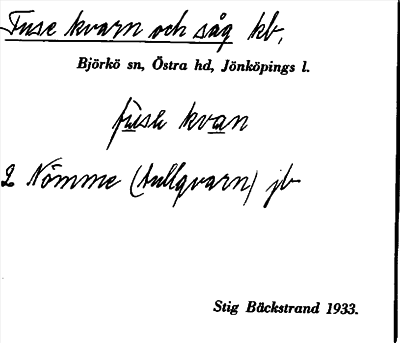 Fuse kvarn och såg kb,
Björkö sn, Östra hd, Jönköpings l.
fuse kvan
2 Nömme (tullqvarn) jb
Stig Bäckstrand 1933.